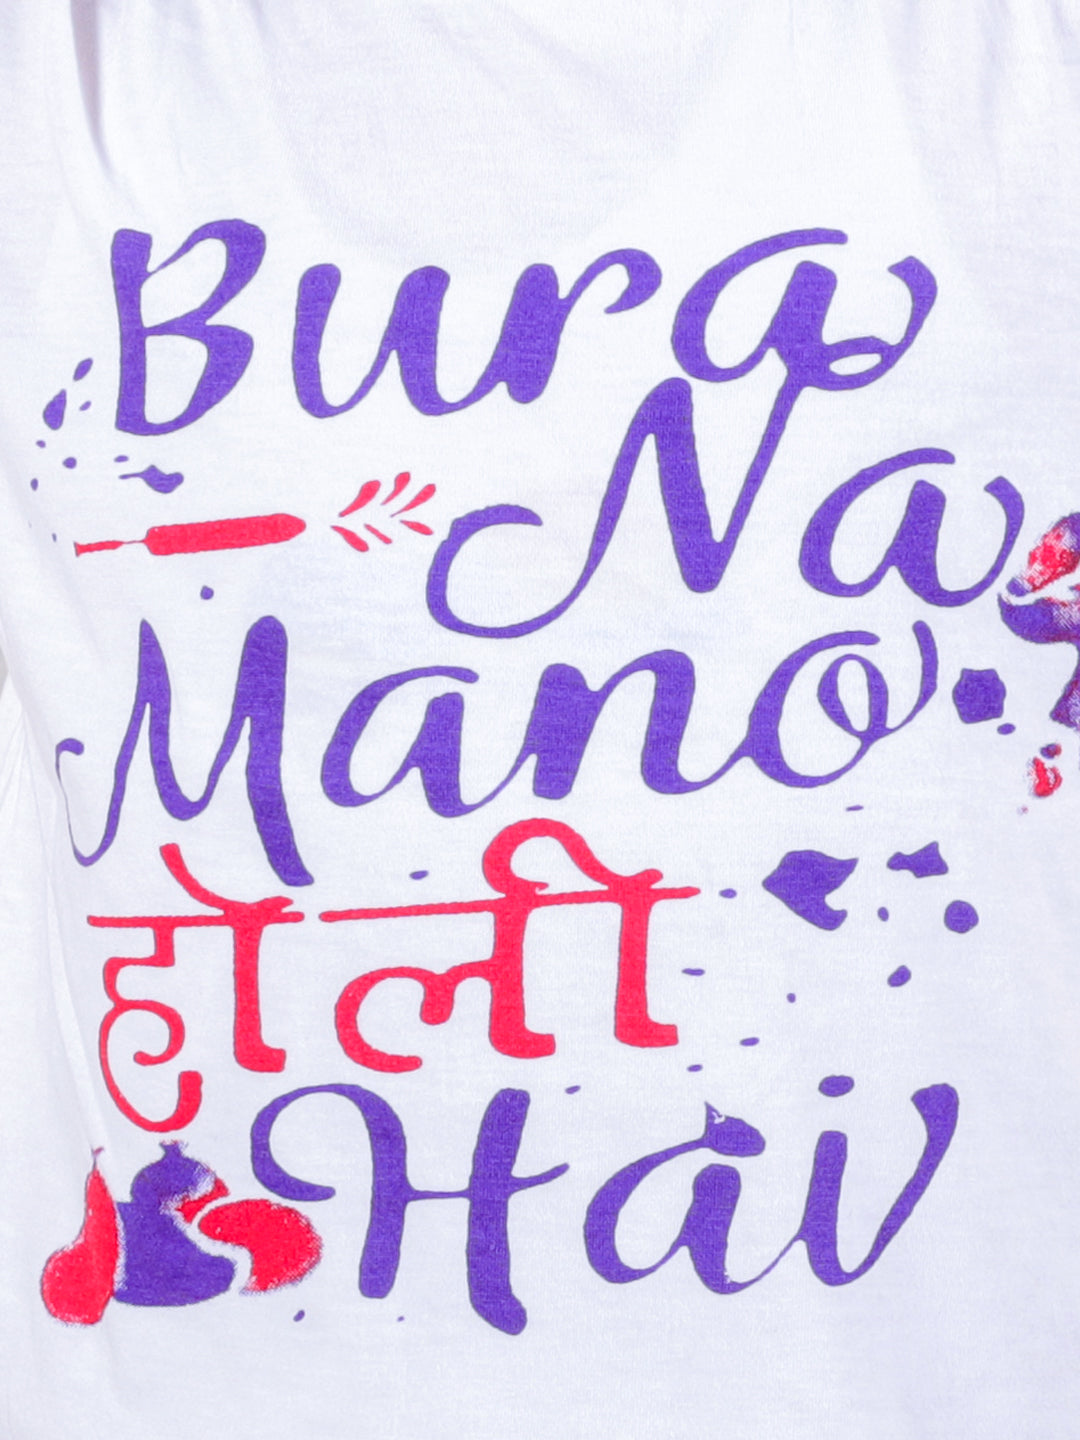 Bura
Na
Mano
होली
Hai